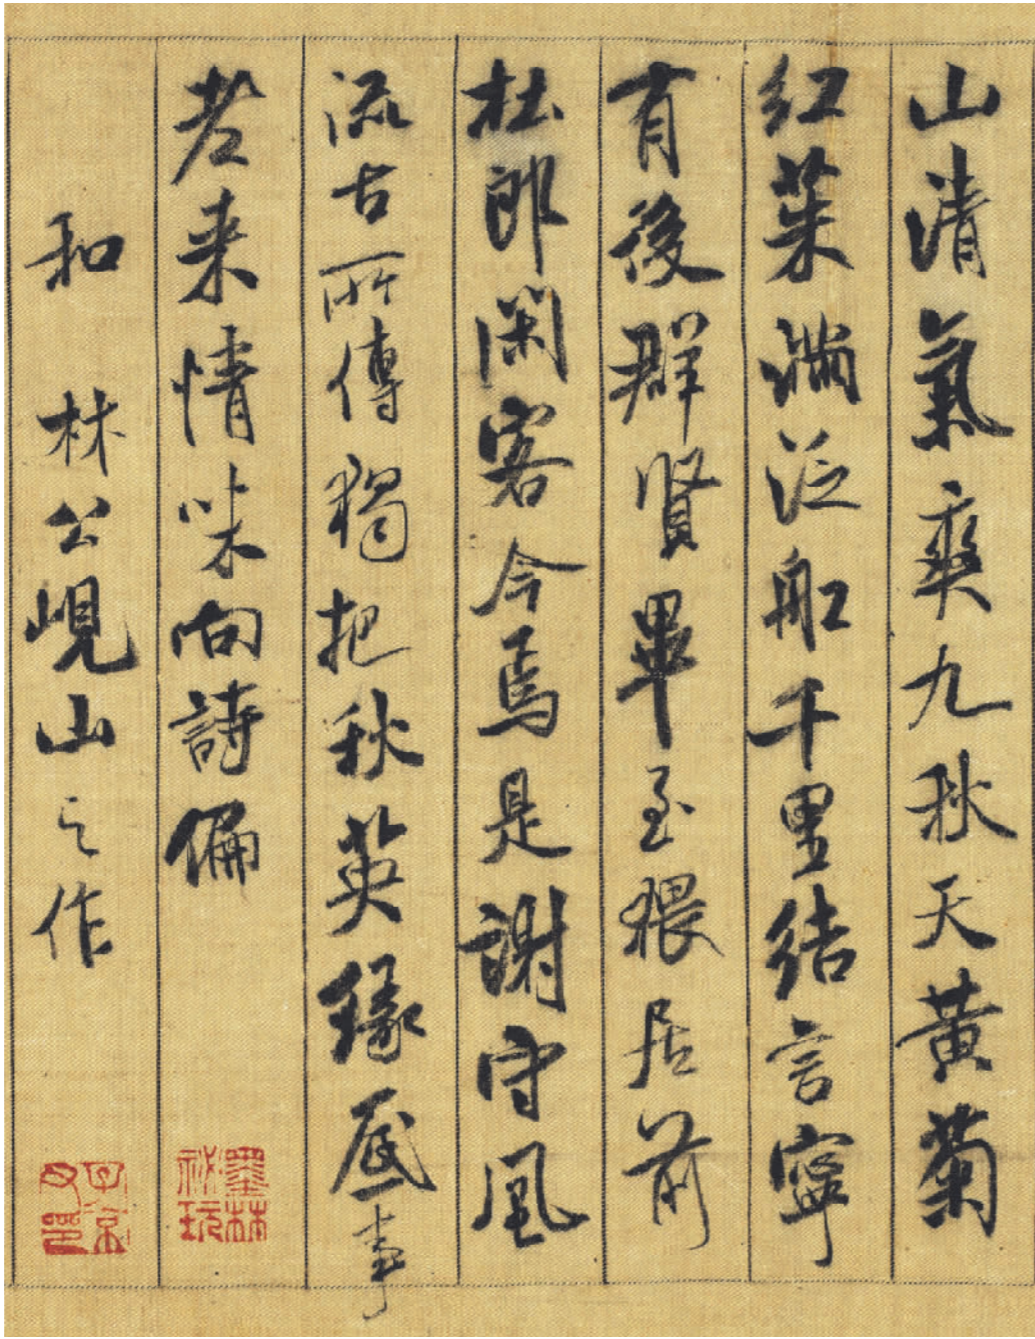 山清氣爽九秋天黄菊
紅茱滿泛船千里結言寧
有後群賢畢至猥居前
杜郎閑客今焉是謝守風
流古所傳獨把秋英緣底事
老来情味向詩偏
和林公峴山之作
墨林
祕玩
子京
父印